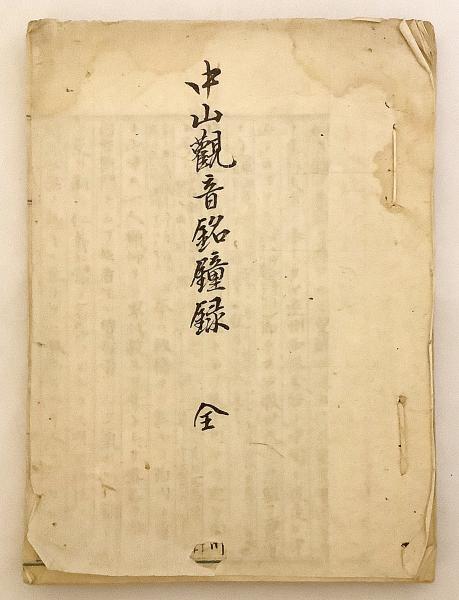 中山觀音銘鐘録 全